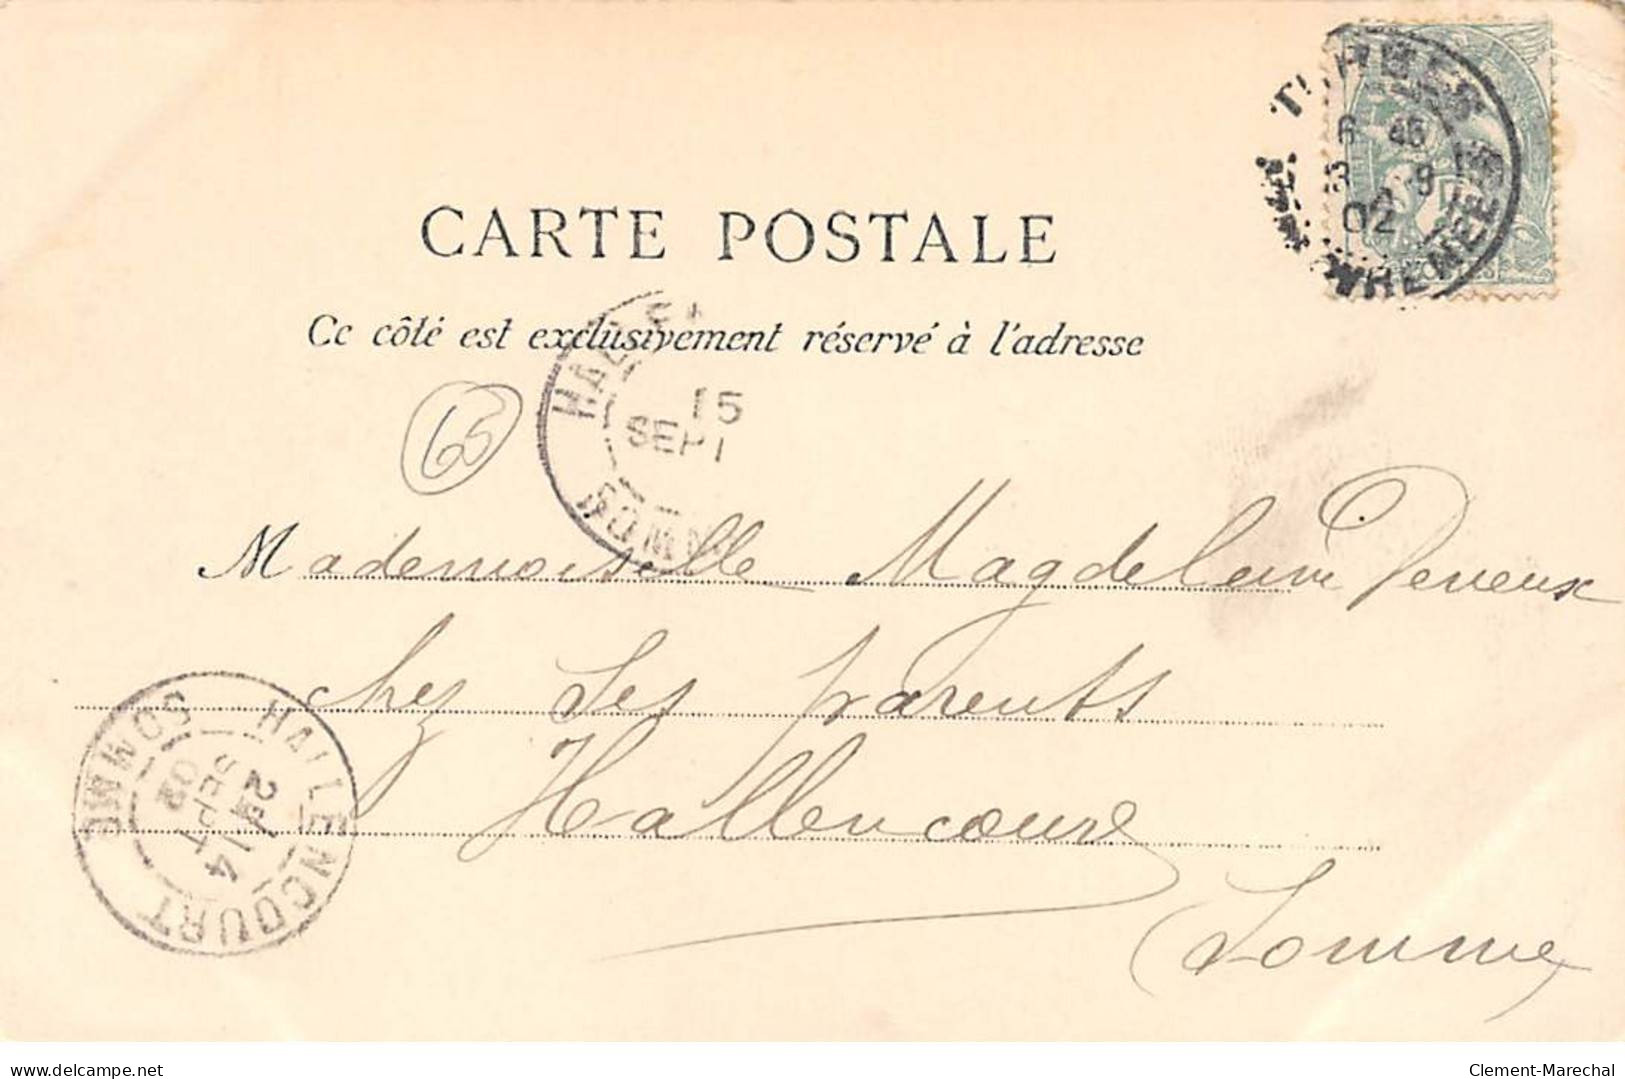 TARBES
6 45
3 9
02
PYRENEES
CARTE POSTALE
Ce côté est exclusivement réservé à l'adresse
65
15
SEPT
SOMME
Mademoiselle Magdeleine
chez ses parents
Hallencourt
Somme
HALLENCOURT
2E 14
SEPT
02
SOMME
www.delcampe.net
Clement-Marechal